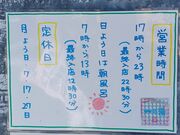 営業時間
17時から23時
(最終入店22時30分)
日よう日は朝風呂
7時から13時
(最終入店12時30分)
定休日
月よう日 7 17 27日